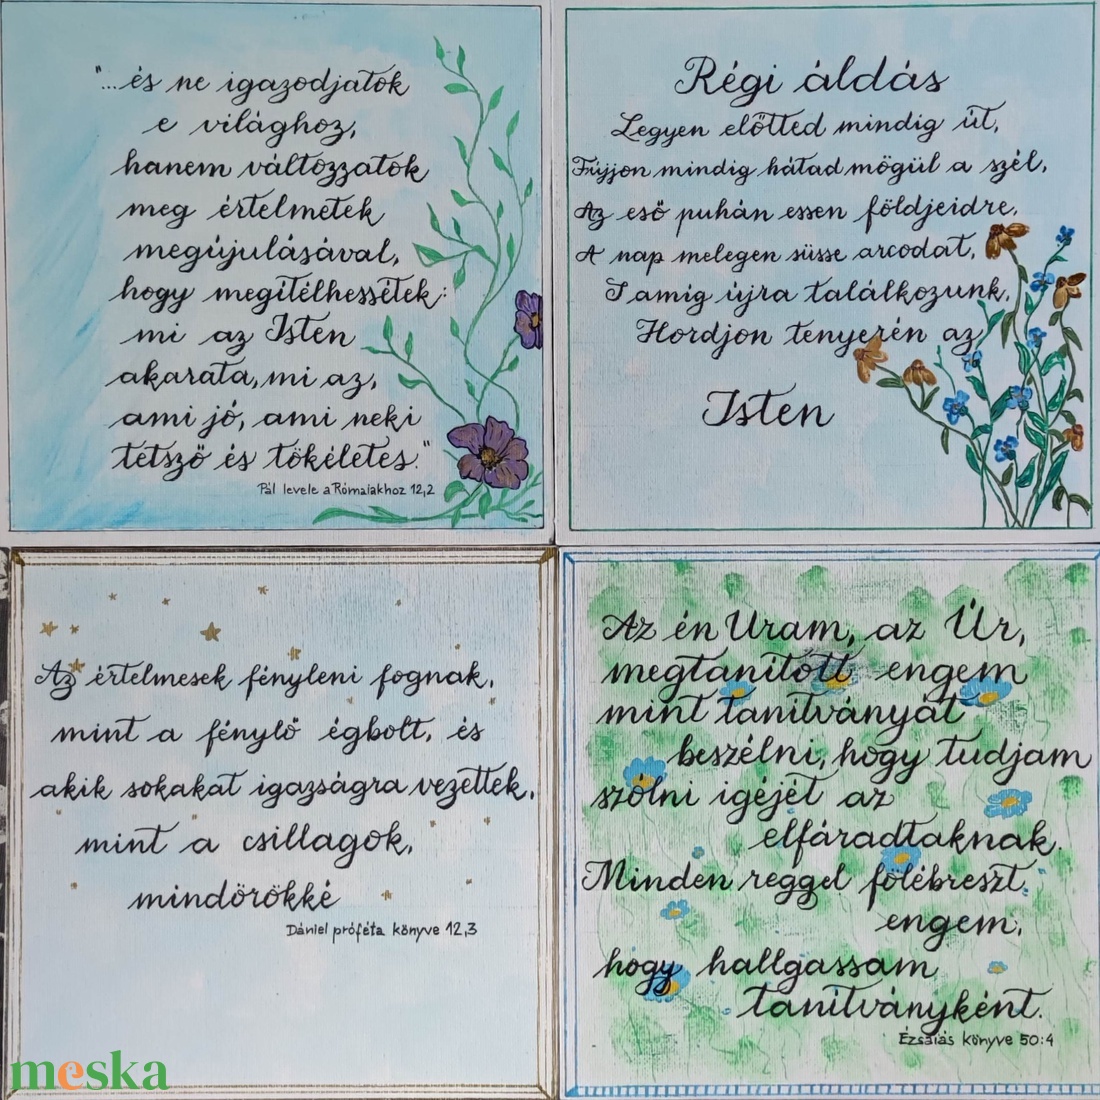 "...és ne igazodjatok
e világhoz,
hanem változzatok
meg értelmetek
megújulásával,
hogy megítélhessétek:
mi az Isten
akarata, mi az,
ami jó, ami neki
tetsző és tökéletes."
Pál levele a Rómaiakhoz 12,2
Régi áldás
Legyen előtted mindig út,
Fújjon mindig hátad mögül a szél,
Az eső puhán essen földjeidre,
A nap melegen süsse arcodat,
S amíg újra találkozunk,
Hordjon tenyerén az
Isten
Az értelmesek fényleni fognak,
mint a fénylő égbolt, és
akik sokakat igazságra vezettek,
mint a csillagok,
mindörökké
Dániel próféta könyve 12,3
Az én Uram, az Úr,
megtanított engem
mint tanítványát
beszélni, hogy tudjam
szólni igéjét az
elfáradtaknak.
Minden reggel fölébreszt,
engem,
hogy hallgassam
tanítványként.
Ézsaiás könyve 50:4
meska